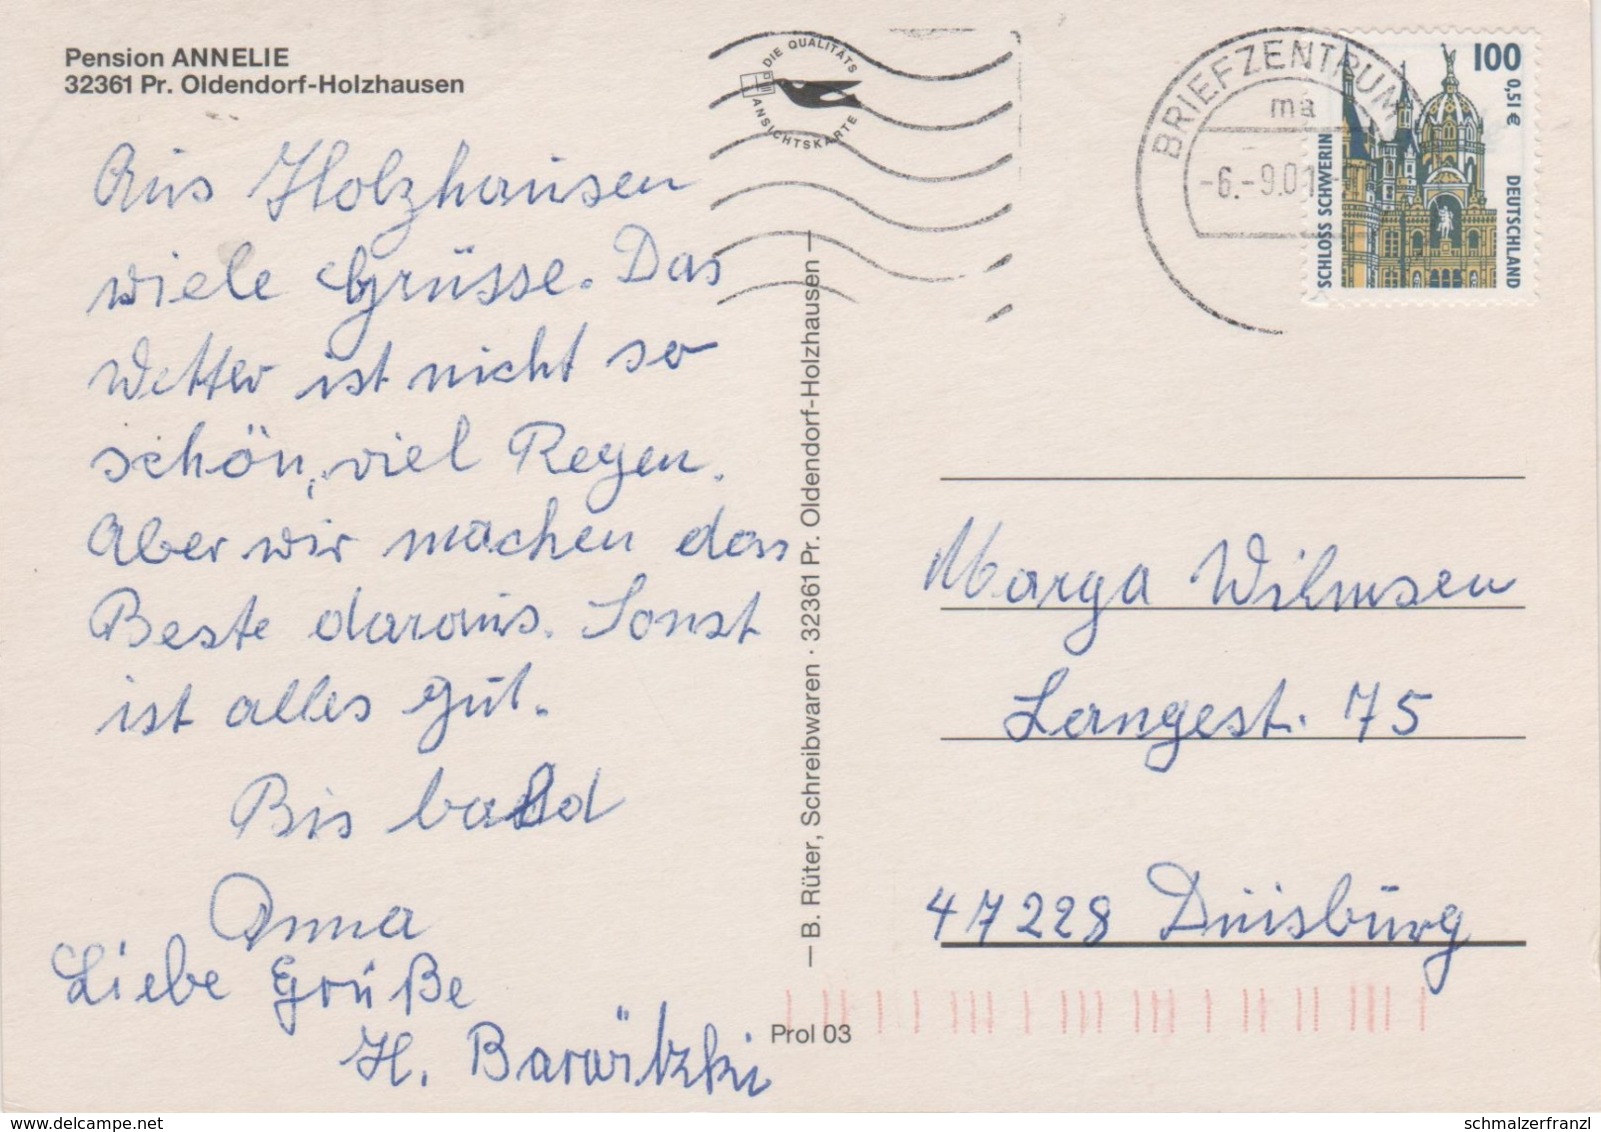 Pension ANNELIE
32361 Pr. Oldendorf-Holzhausen
Aus Holzhausen
viele Grüsse. Das
Wetter ist nicht so
schön, viel Regen.
Aber wir machen das
Beste daraus. Sonst
ist alles gut.
Bis bald
Anna
Liebe Grüße
H. Barwitzki
DIE QUALITÄTS
ANSICHTSKARTE
BRIEFZENTRUM
ma
-6.-9.01-
100
0,51 €
SCHLOSS SCHWERIN
DEUTSCHLAND
— B. Rüter, Schreibwaren · 32361 Pr. Oldendorf-Holzhausen —
Marga Wilmsen
Langest. 75
47228 Duisburg
Prol 03
www.delcampe.net
schmalzerfranzl